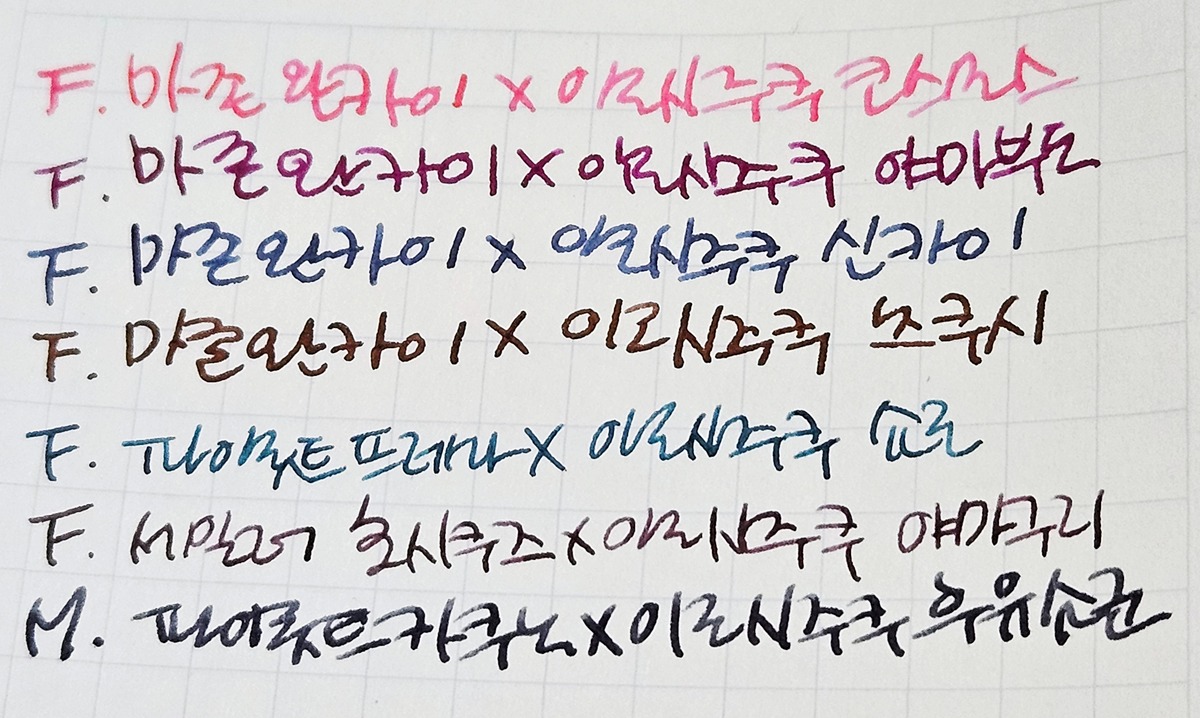 F. 마존 완카이 X 이로시주쿠 코스모스
F. 마존 완카이 X 이로시주쿠 야마부도
F. 마존 완카이 X 이로시주쿠 신카이
F. 마존 완카이 X 이로시주쿠 츠쿠시
F. 파이롯트 프레라 X 이로시주쿠 슈로
F. 세일러 호시쿠즈 X 이로시주쿠 야마구리
M. 파이롯트 카쿠노 X 이로시주쿠 후유쇼군